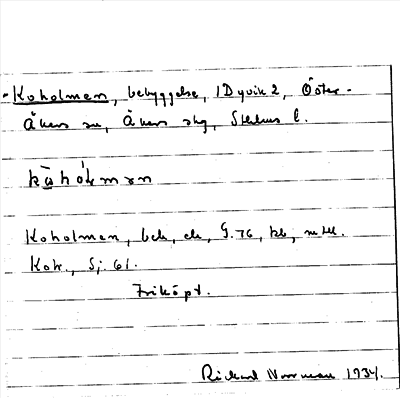 Koholmen, bebyggelse, 1 Dyvik 2, Öster-
Åkers sn, Åkers skg, Sthlms l.
Koholmen, beb, ek, G. 76, kb, m bl.
Kok., Sj. 61.
Friköpt.
Rickard Norrman 1934.